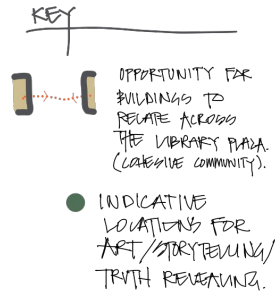 KEY
OPPORTUNITY FOR
BUILDINGS TO
RELATE ACROSS
THE LIBRARY PLAZA.
(COHESIVE COMMUNITY).
INDICATIVE
LOCATIONS FOR
ART/STORYTELLING/
TRUTH REVEALING.